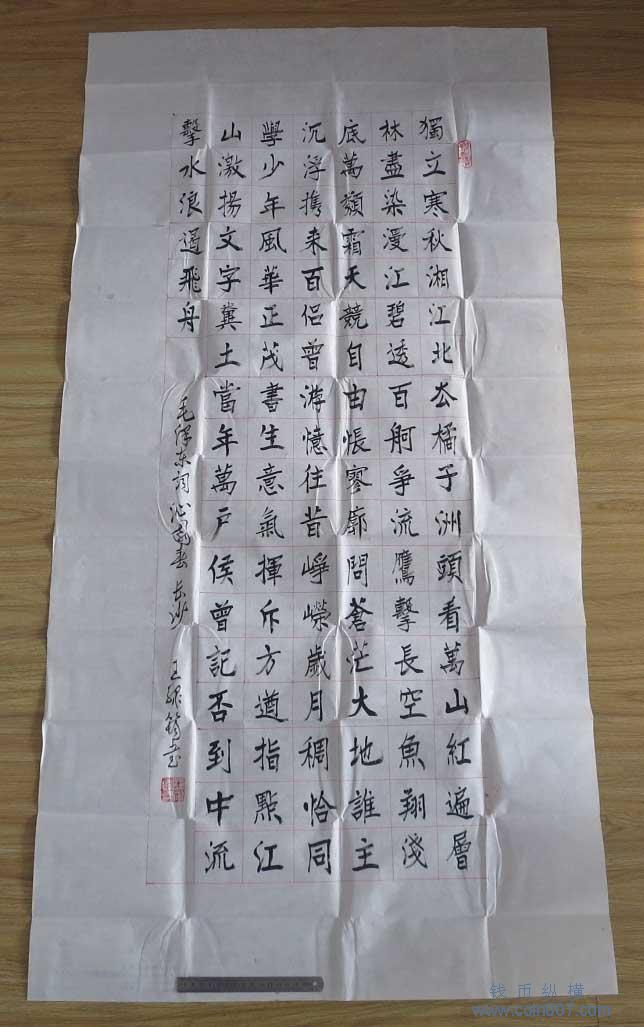 獨立寒秋湘江北去橘子洲頭看萬山紅遍層
林盡染漫江碧透百舸爭流鷹擊長空魚翔淺
底萬類霜天競自由悵寥廓問蒼茫大地誰主
沉浮携来百侣曾游憶往昔崢嶸歲月稠恰同
學少年風華正茂書生意氣揮斥方遒指點江
山激揚文字糞土當年萬戶侯曾記否到中流
擊水浪遏飛舟
毛泽东词沁园春 长沙 王
钱币纵横
www.coin007.com